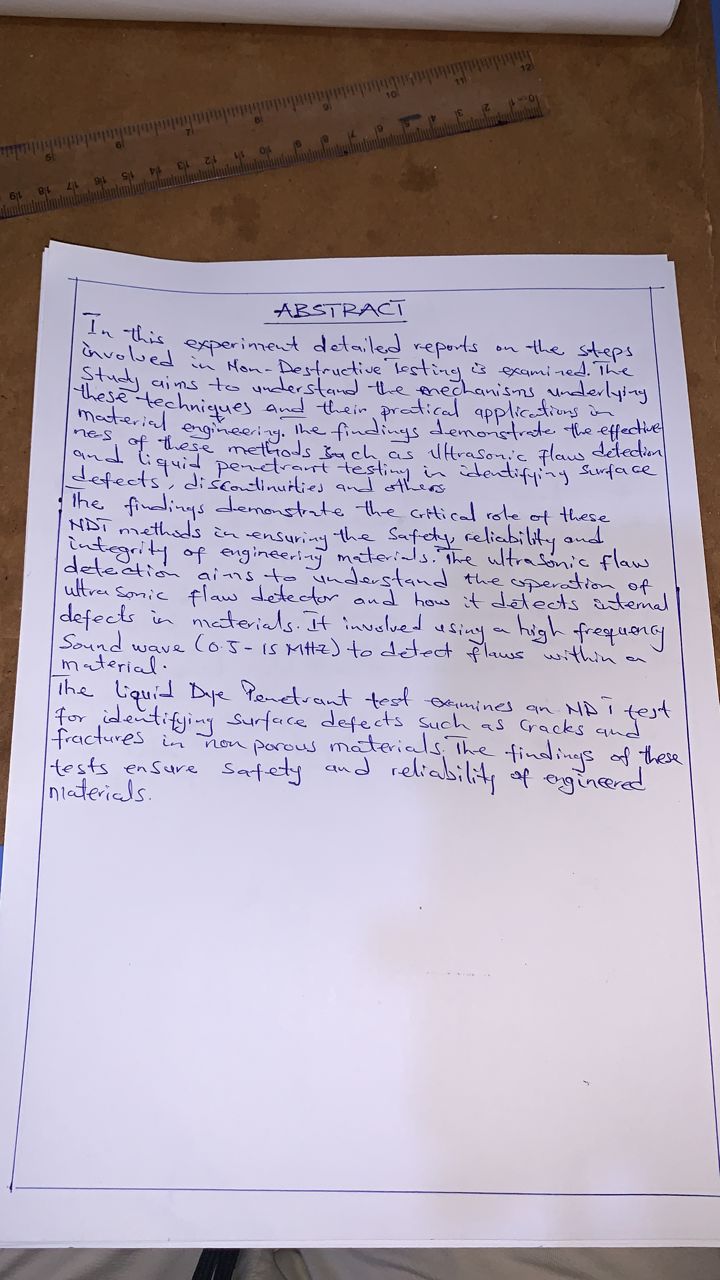 12 11 10 9 8 7 6 5
0cm 1 2 3 4 5 6 7 8 9 10 11 12 13 14 15 16 17 18 19
ABSTRACT
In this experiment detailed reports on the steps
involved in Non-Destructive Testing is examined. The
Study aims to understand the mechanisms underlying
these techniques and their pratical applications in
material engineering. The findings demonstrate the effective
ness of these methods such as Ultrasonic flaw detection
and liquid penetrant testing in identifying surface
defects, discontinuities and others
The findings demonstrate the critical role of these
NDT methods in ensuring the safety, reliability and
integrity of engineering materials. The ultrasonic flaw
detection aims to understand the operation of
ultrasonic flaw detector and how it detects internal
defects in materials. It involved using a high frequency
Sound wave (0.5 - 15 MHz) to detect flaws within a
material.
The liquid Dye Penetrant test examines an NDT test
for identifying surface defects such as cracks and
fractures in non porous materials. The findings of these
tests ensure safety and reliability of engineered
materials.